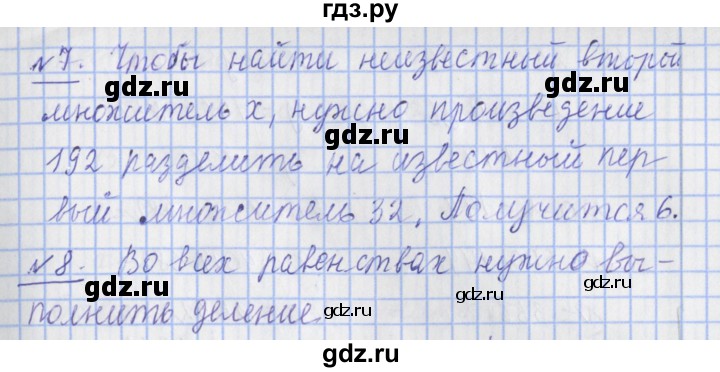 гдз.ру
№7. Чтобы найти неизвестный второй
множитель х, нужно произведение
192 разделить на известный пер-
вый множитель 32. Получится 6.
№8. Во всех равенствах нужно вы-
полнить деление.
gdz.ru gdz.ru
gdz.ru gdz.ru
gdz.ru gdz.ru
gdz.ru gdz.ru
gdz.ru gdz.ru
gdz.ru
gdz.ru